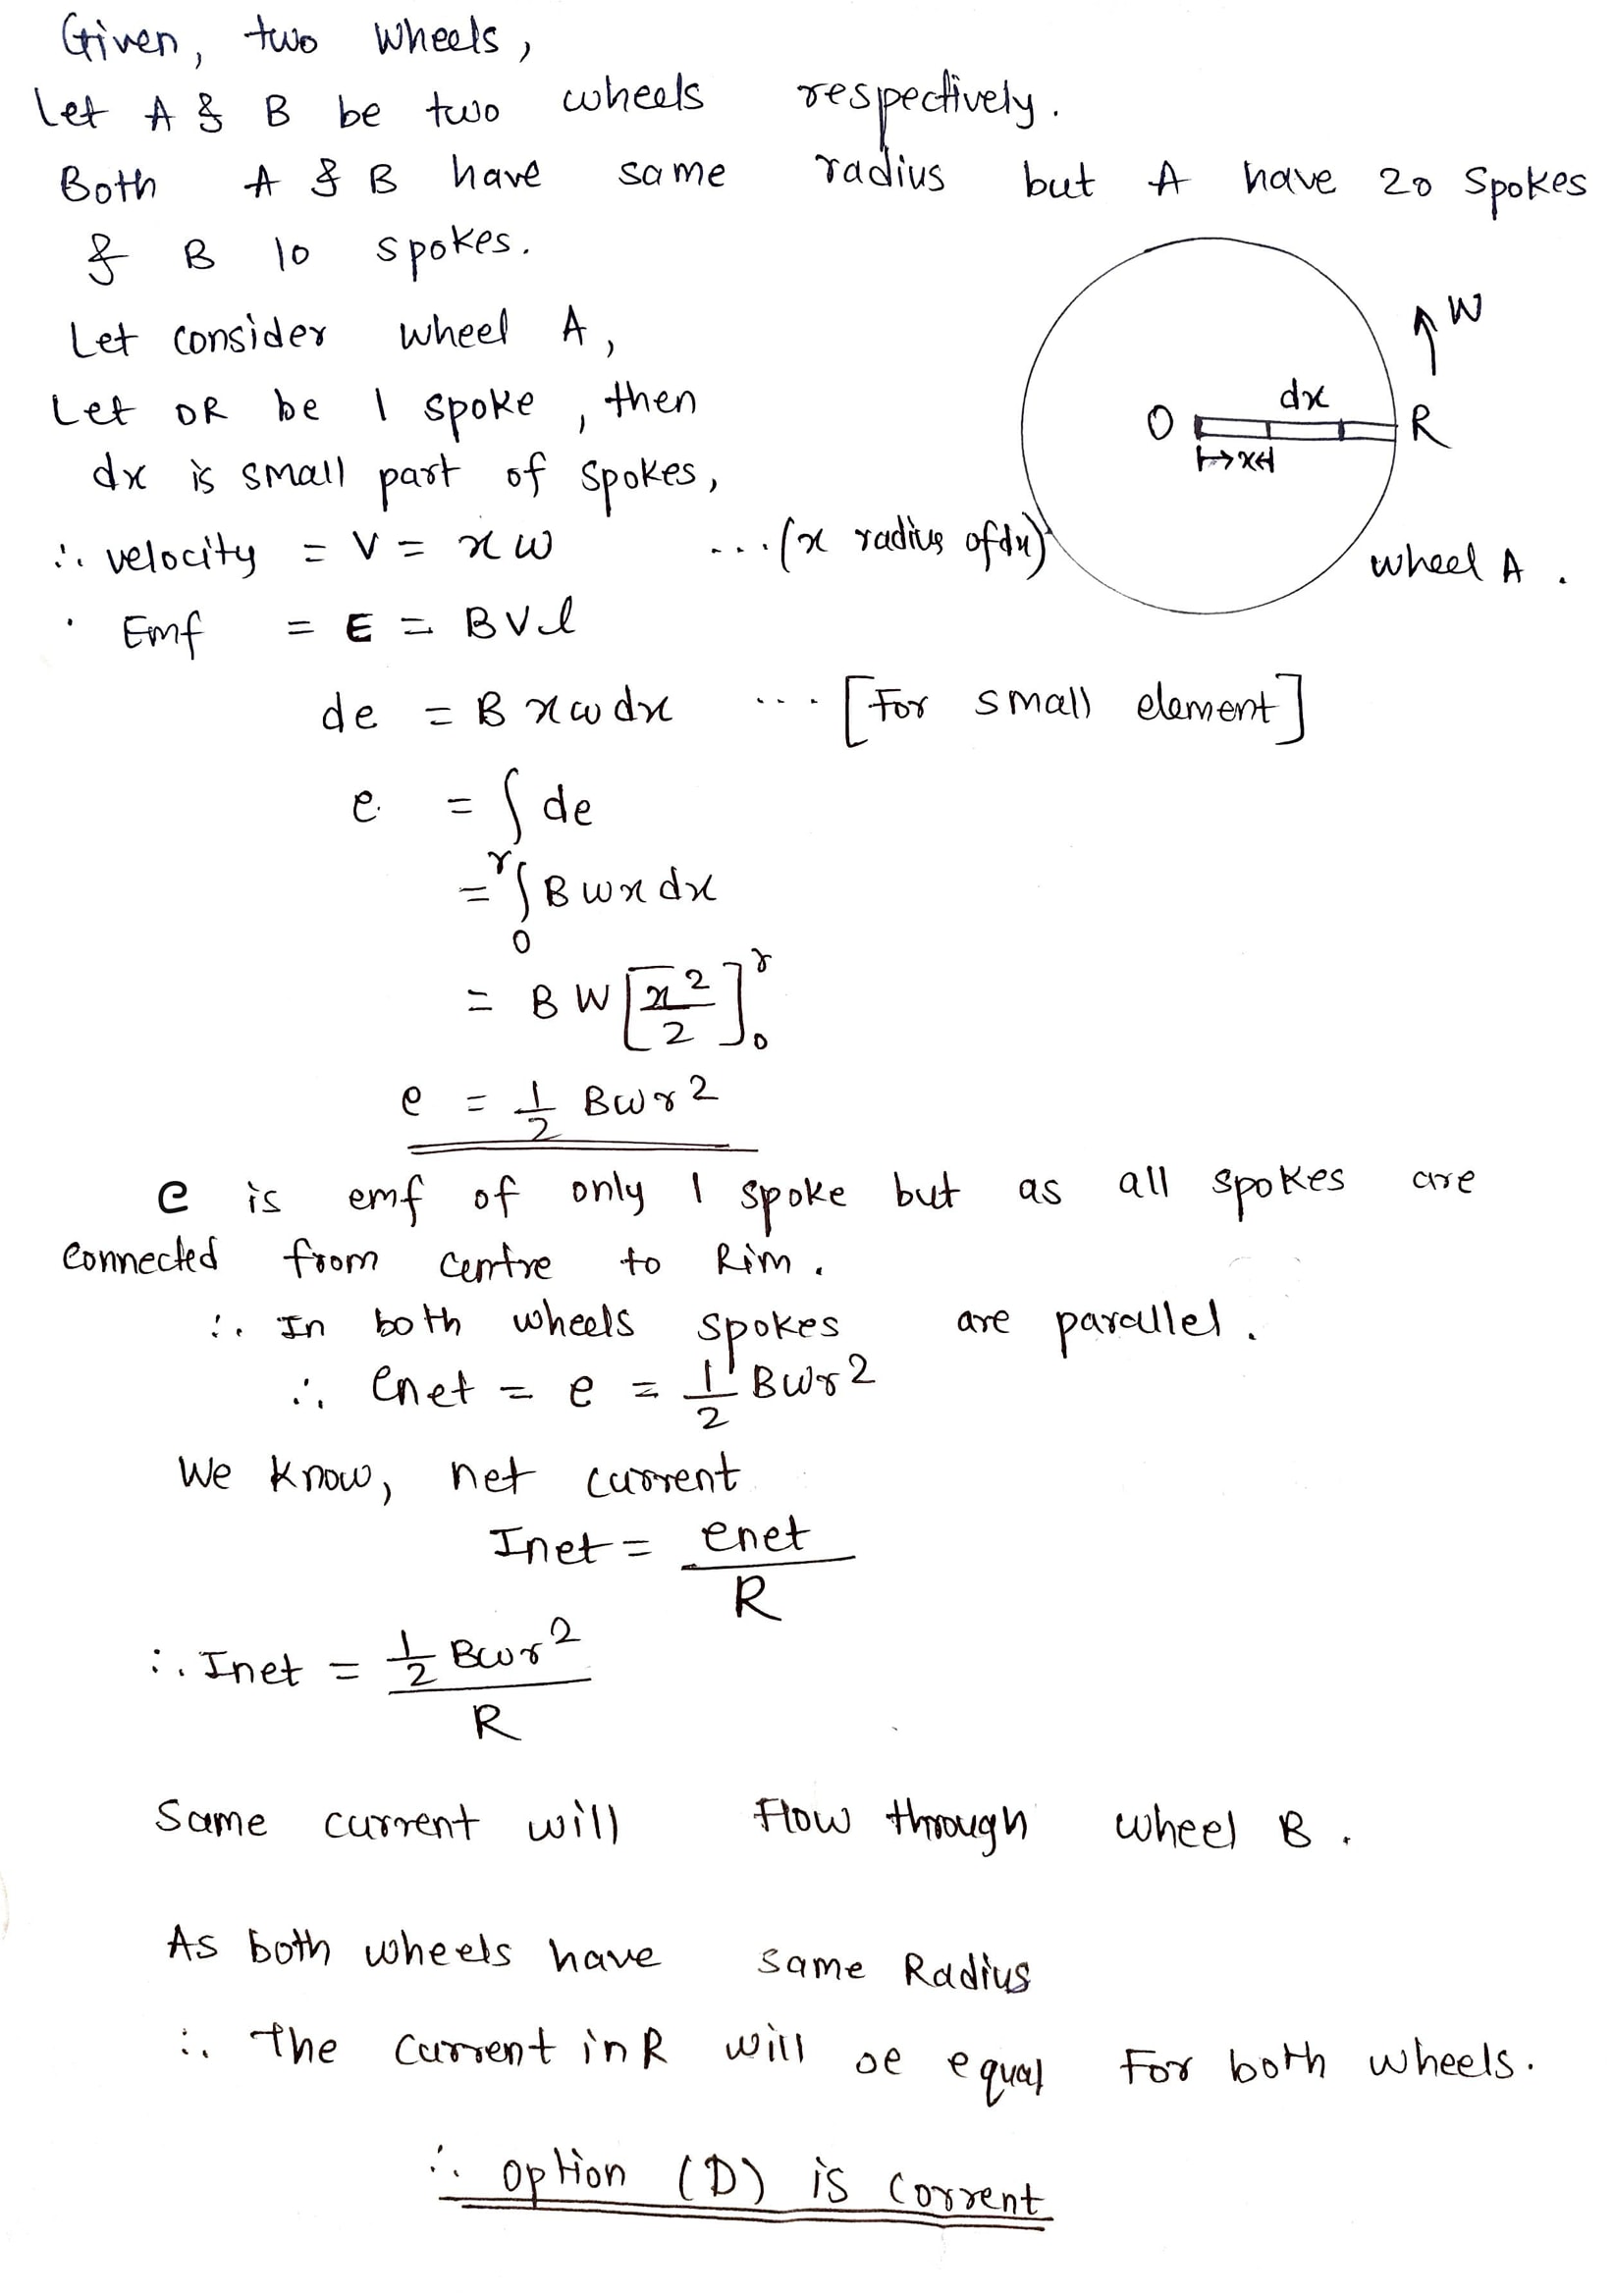 Given, two wheels,
Let A & B be two wheels respectively.
Both A & B have same radius but A have 20 spokes
& B 10 spokes.
Let consider wheel A,
Let OR be 1 spoke, then
dx is small part of spokes,
W
dx
O R
x
wheel A.
∴ velocity = V = xw ...(x radius of dx)
Emf = E = BVl
de = B x w dx ... [For small element]
e = ∫ de
= ∫₀ʳ B w x dx
= B W [x²/2]₀ʳ
e = 1/2 Bwr²
e is emf of only 1 spoke but as all spokes are
connected from centre to Rim.
∴ In both wheels spokes are parallel.
∴ enet = e = 1/2 Bwr²
We know, net current
Inet = enet/R
∴ Inet = 1/2 Bwr² / R
Same current will flow through wheel B.
As both wheels have same Radius
∴ The current in R will be equal For both wheels.
∴ option (D) is corrent